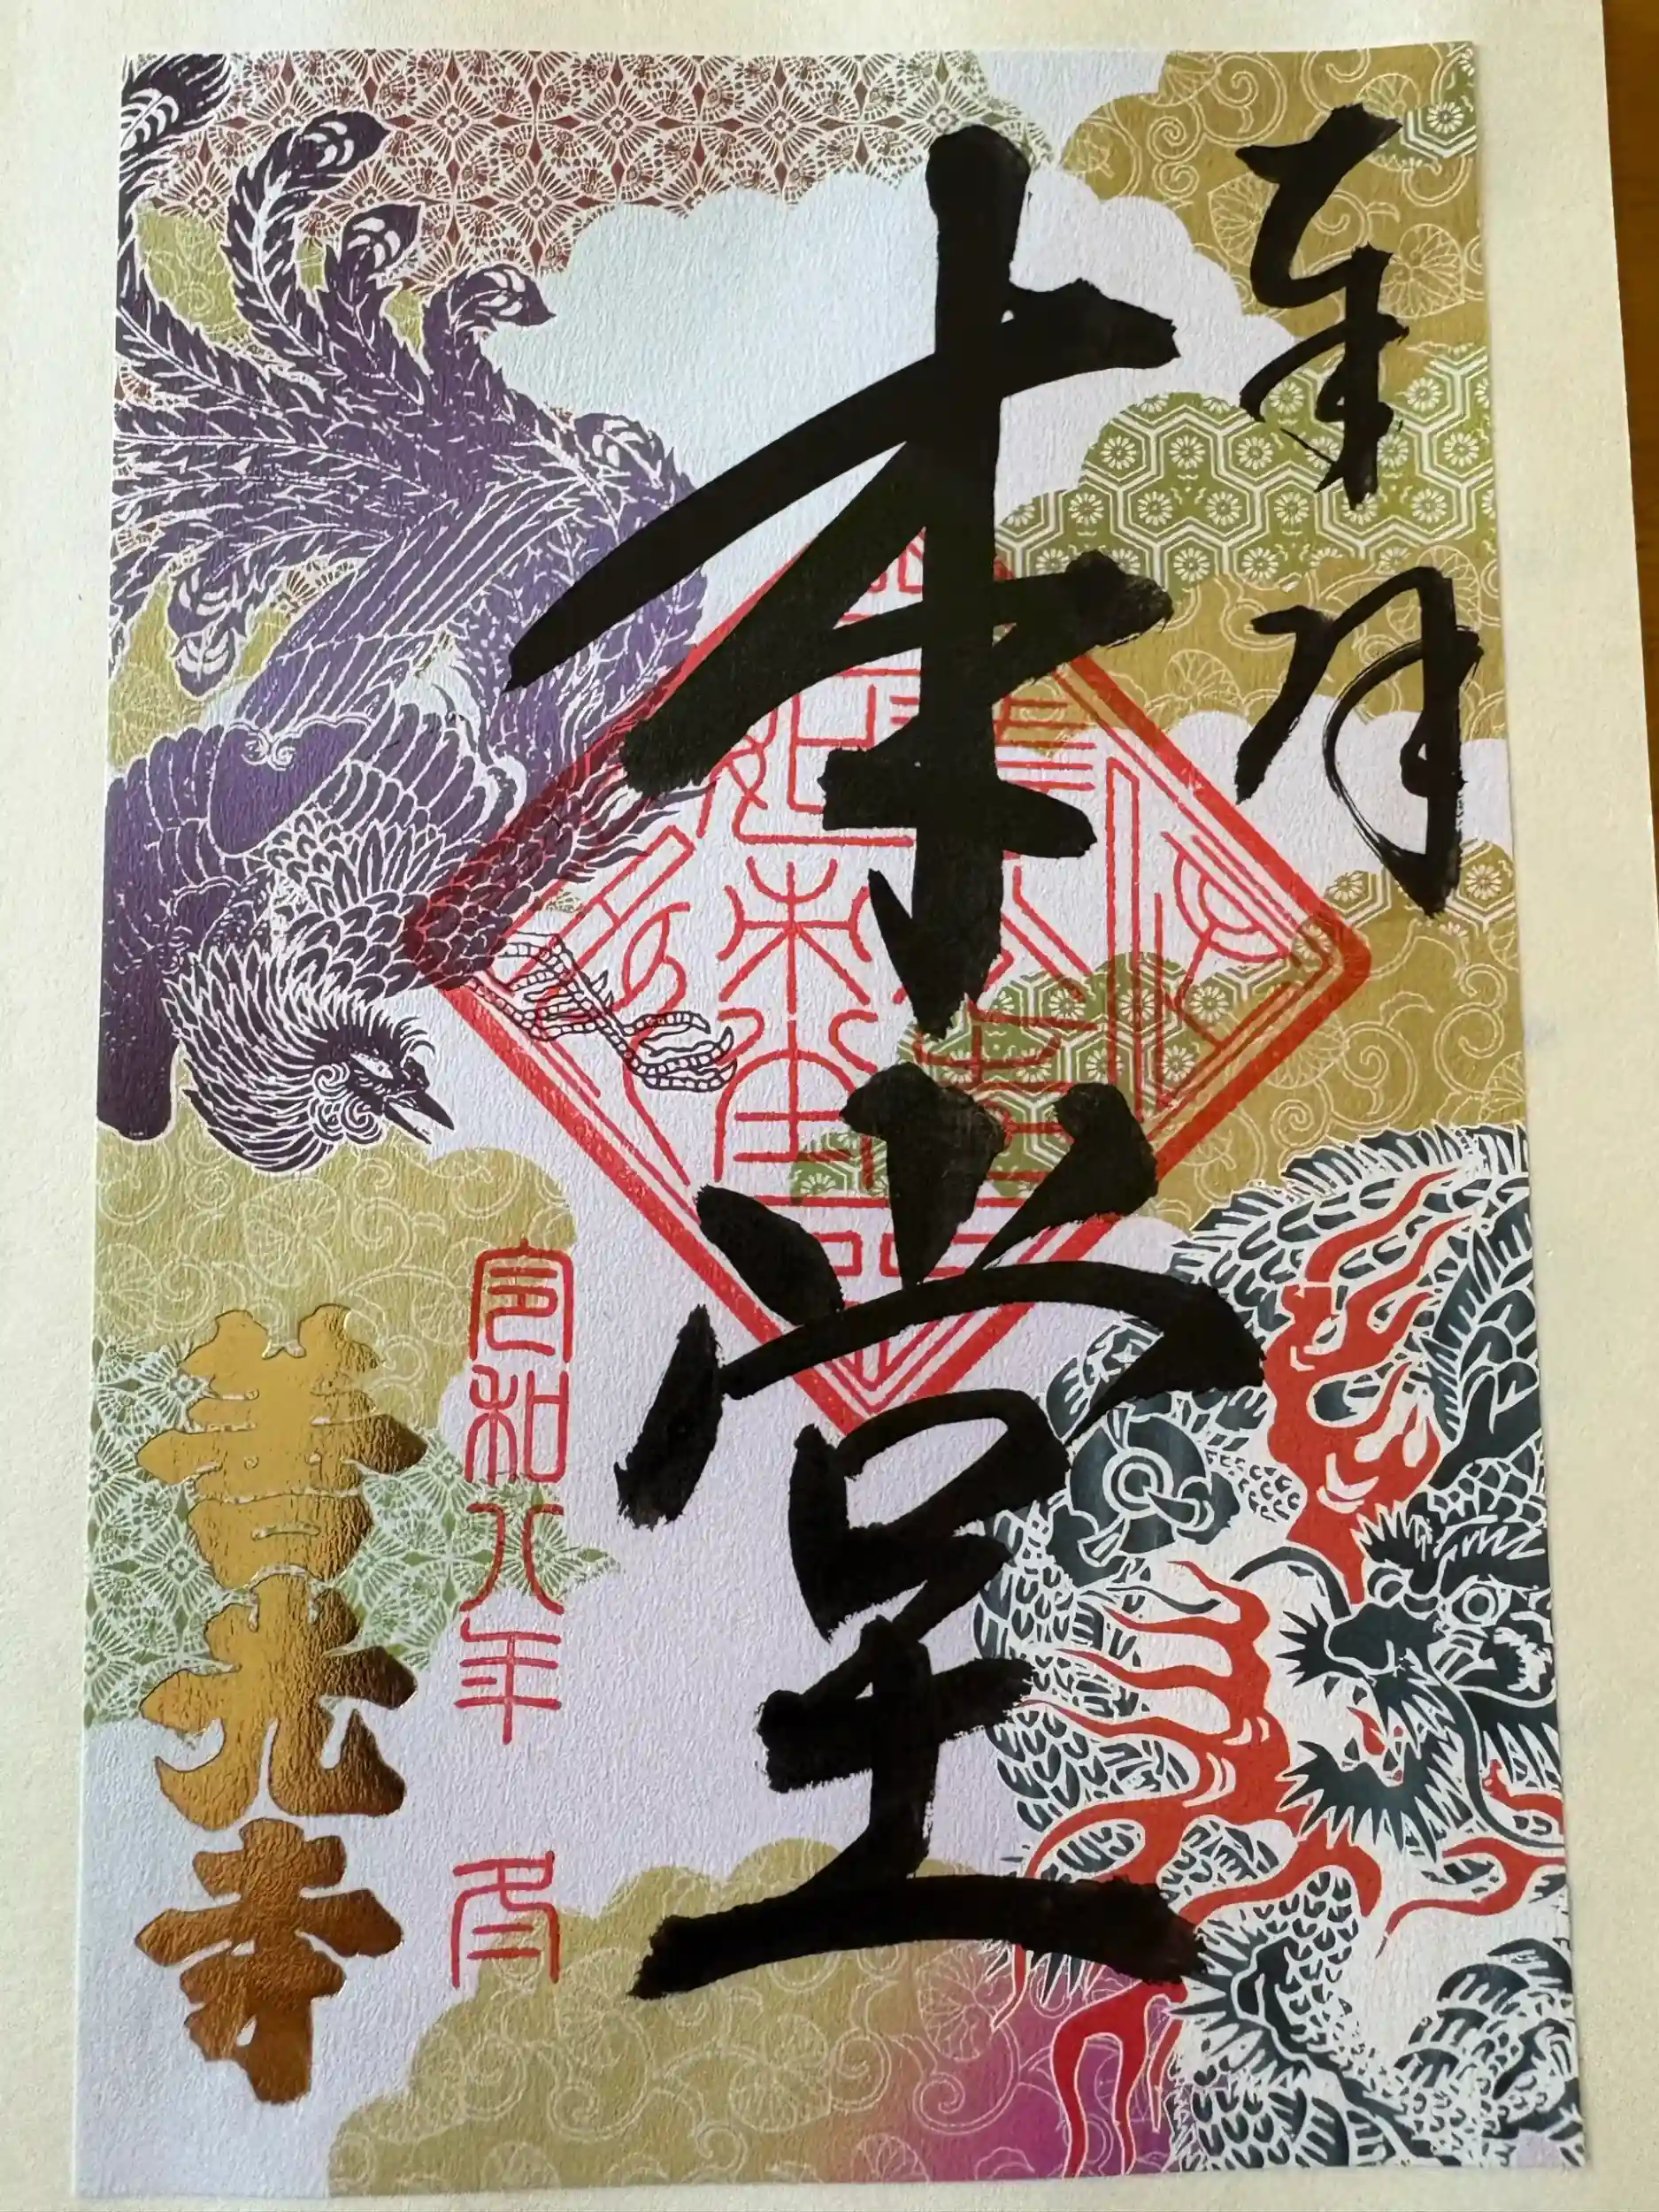 奉拝
本堂
令和八年 午
善光寺